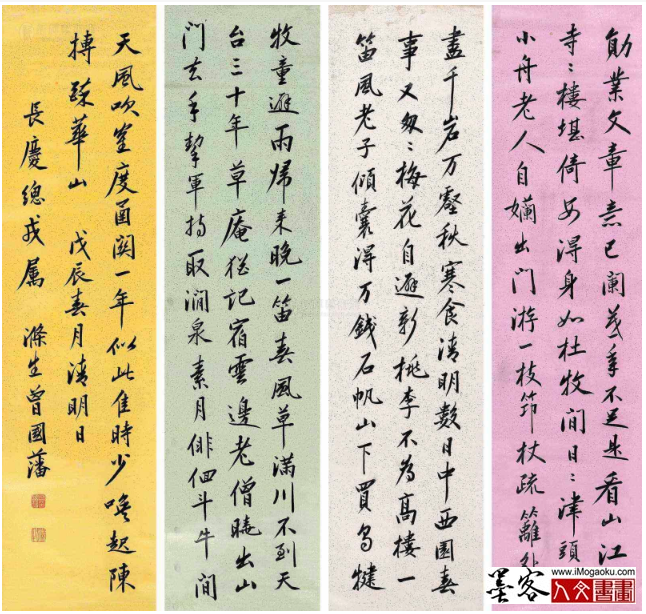 勛業文章意已闌年不足是看山江
寺〻樓堪倚安得身如杜牧閒日〻津頭
小舟老人自嬾出門游一枝筇杖疏籬外
盡千岩万壑秋寒食清明數日中西園春
事又匆〻梅花自避新桃李不為高樓一
笛風老子傾囊得万錢石帆山下買烏犍
牧童避雨歸來晚一笛春風草滿川不到天
台三十年草庵猶記宿雲邊老僧曉出山
門去手挈軍持取澗泉素月徘徊斗牛間
天風吹度函關一年似此佳時少喚起陳
摶華山 戊辰春月清明日
長慶總戎屬 滌生曾國藩
墨客
人文書畫
www.iMogaoku.com